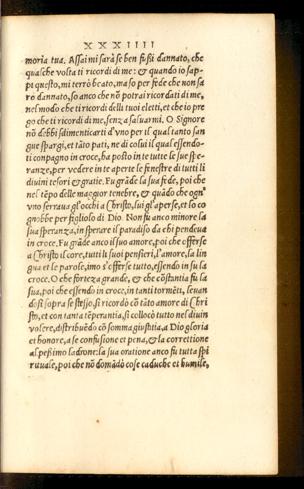 XXXIIII
moria tua. Assai mi sarà se ben fussi dannato, che
qualche volta ti ricordi di me: & quando io sap-
pi questo, mi terrò beato, ma so per fede che non sa
ro dannato, so anco che nō potrai ricordati di me,
nel modo che ti ricordi delli tuoi eletti, et che io pre
go che ti ricordi di me, senza salvarmi. O Signore
nō debbi sdimenticarti d'vno per il qual tanto san
gue spargi, et tāto pati, ne di colui il qual essendo-
ti conpagno in croce, ha posto in te tutte le sue spe-
ranze, per vedere in te aperte le finestre di tutti li
divini tesori & gratie. Fu grāde la sua fede, poi che
nel tēpo delle maggior tenebre, & quādo che ogn'
vno serraua gl'occhi a Christo, lui gl'aperse, et lo co
gnobbe per figliolo di Dio. Non fu anco minore la
sua speranza, in sperare il paradiso da chi pendeua
in croce. Fu grāde anco il suo amore, poi che offerse
a Christo il core, tutti li suoi pensieri, l'amore, la lin
gua et le parole, imo s'offerse tutto, essendo in su la
croce. O che forteza grande, & che cōstantia fu la
sua, poi che essendo in croce, in tanti tormēti, leuan
do si sopra se stesso, si ricordò cō tāto amore di Chri
sto, et con tanta tēperantia, si collocò tutto nel diuin
volere, distribuēdo cō somma giustitia, a Dio gloria
et honore, a se confusione et pena, & la correttione
al peßimo ladrone: la sua oratione anco fu tutta spi
rituale, poi che nō domādò cose caduche et humile,